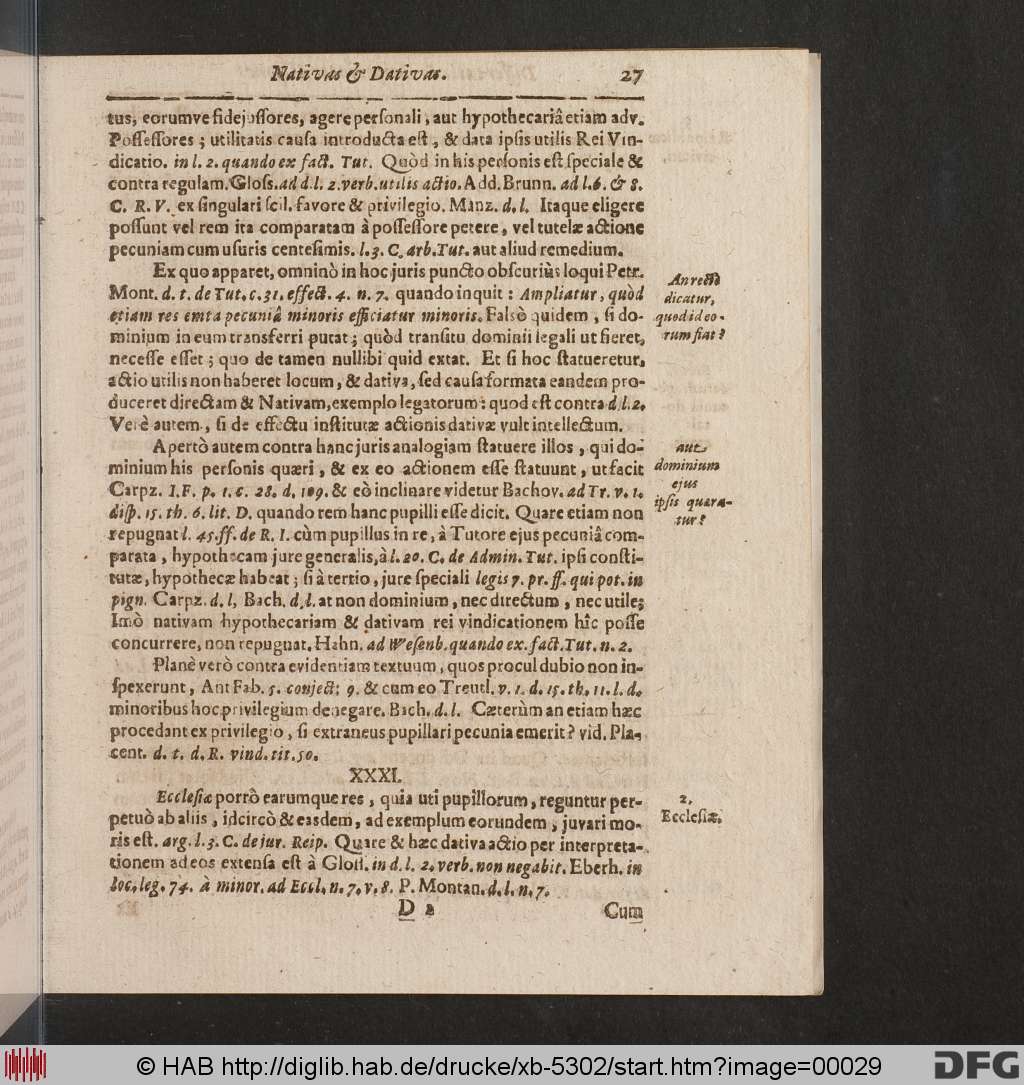 Nativas & Dativas. 27
tus, eorumve fidejussores, agere personali, aut hypothecariâ etiam adv.
Possessores; utilitatis causa introducta est, & data ipsis utilis Rei Vin-
dicatio. in l. 2. quando ex fact. Tut. Quòd in his personis est speciale &
contra regulam. Gloss. ad d. l. 2. verb. utilis actio. Add. Brunn. ad l. 6. & 8.
C. R. V. ex singulari scil. favore & privilegio. Manz. d. l. Itaque eligere
possunt vel rem ita comparatam à possessore petere, vel tutelæ actione
pecuniam cum usuris centesimis. l. 3. C. arb. Tut. aut aliud remedium.
Ex quo apparet, omninò in hoc juris puncto obscuriùs loqui Petr.
Mont. d. t. de Tut. c. 31. effect. 4. n. 7. quando inquit: Ampliatur, quòd
etiam res emta pecuniâ minoris efficiatur minoris. Falsò quidem, si do-
minium in eum transferri putat; quòd transitu dominii legali ut fieret,
necesse esset; quo de tamen nullibi quid extat. Et si hoc statueretur,
actio utilis non haberet locum, & dativa, sed causa formata eandem pro-
duceret directam & Nativam, exemplo legatorum: quod est contra d. l. 2.
Verè autem, si de effectu institutæ actionis dativæ vult intellectum.
An recte
dicatur,
quod id eo-
rum fiat?
Apertò autem contra hanc juris analogiam statuere illos, qui do-
minium his personis quæri, & ex eo actionem esse statuunt, ut facit
Carpz. I. F. p. 1. c. 28. d. 109. & eò inclinare videtur Bachov. ad Tr. v. 1.
disp. 15. th. 6. lit. D. quando rem hanc pupilli esse dicit. Quare etiam non
repugnat l. 45. ff. de R. I. cùm pupillus in re, à Tutore ejus pecuniâ com-
parata, hypothecam jure generalis, à l. 20. C. de Admin. Tut. ipsi consti-
tutæ, hypothecæ habeat; si à tertio, jure speciali legis 7. pr. ff. qui pot. in
pign. Carpz. d. l, Bach. d. l. at non dominium, nec directum, nec utile;
Imò nativam hypothecariam & dativam rei vindicationem hîc posse
concurrere, non repugnat. Hahn. ad Wesenb. quando ex. fact. Tut. n. 2.
aut
dominium
ejus
ipsis quæra-
tur?
Planè verò contra evidentiam textuum, quos procul dubio non in-
spexerunt, Ant Fab. 5. conject: 9. & cum eo Treutl. v. 1. d. 15. th. 11. l. d.
minoribus hoc privilegium denegare. Bach. d. l. Cæterùm an etiam hæc
procedant ex privilegio, si extraneus pupillari pecunia emerit? vid. Pla-
cent. d. t. d. R. vind. tit. 50.
XXXI.
Ecclesiæ porrò earumque res, quia uti pupillorum, reguntur per-
petuò ab aliis, idcircò & easdem, ad exemplum eorundem, juvari mo-
ris est. arg. l. 3. C. de jur. Reip. Quare & hæc dativa actio per interpreta-
tionem ad eos extensa est à Gloss. in d. l. 2. verb. non negabit. Eberh. in
loc. leg. 74. à minor. ad Eccl. n. 7. v. 8. P. Montan. d. l. n. 7.
2.
Ecclesiæ.
D 2 Cum
© HAB http://diglib.hab.de/drucke/xb-5302/start.htm?image=00029
DFG